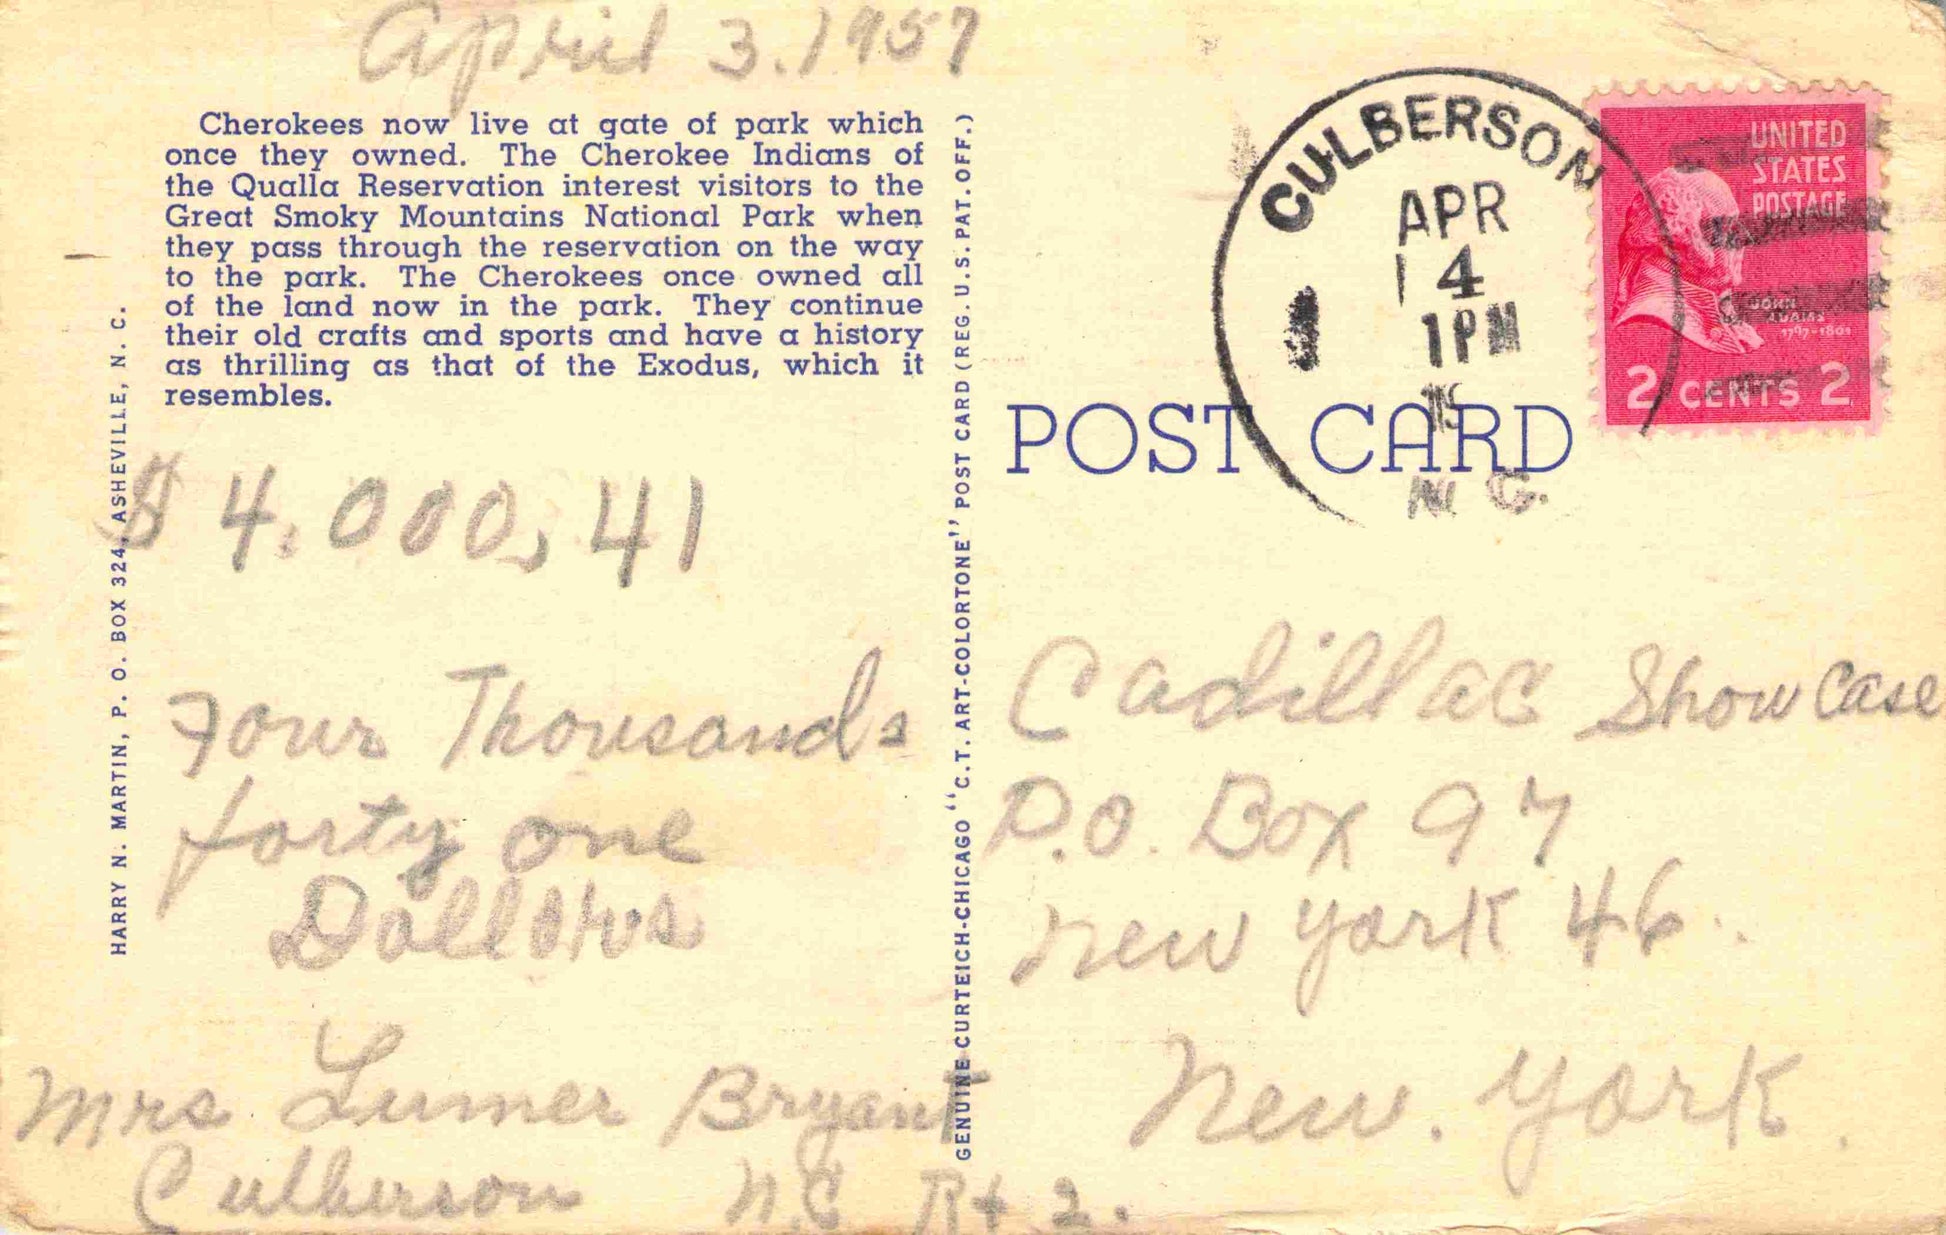 April 3. 1957
Cherokees now live at gate of park which
once they owned. The Cherokee Indians of
the Qualla Reservation interest visitors to the
Great Smoky Mountains National Park when
they pass through the reservation on the way
to the park. The Cherokees once owned all
of the land now in the park. They continue
their old crafts and sports and have a history
as thrilling as that of the Exodus, which it
resembles.
HARRY N. MARTIN, P. O. BOX 324, ASHEVILLE, N. C.
$4.000,41
Four Thousands
forty one
Dollars
Mrs Lumer Bryant
Culberson N.C Rt 2.
GENUINE CURTEICH-CHICAGO "C.T. ART-COLORTONE" POST CARD (REG. U.S. PAT. OFF.)
CULBERSON
APR
4
1 PM
N.C.
UNITED
STATES
POSTAGE
JOHN
ADAMS
1797-1801
2 CENTS 2
POST CARD
Cadillac Show Case
P.O. Box 97
New York 46.
New. York.